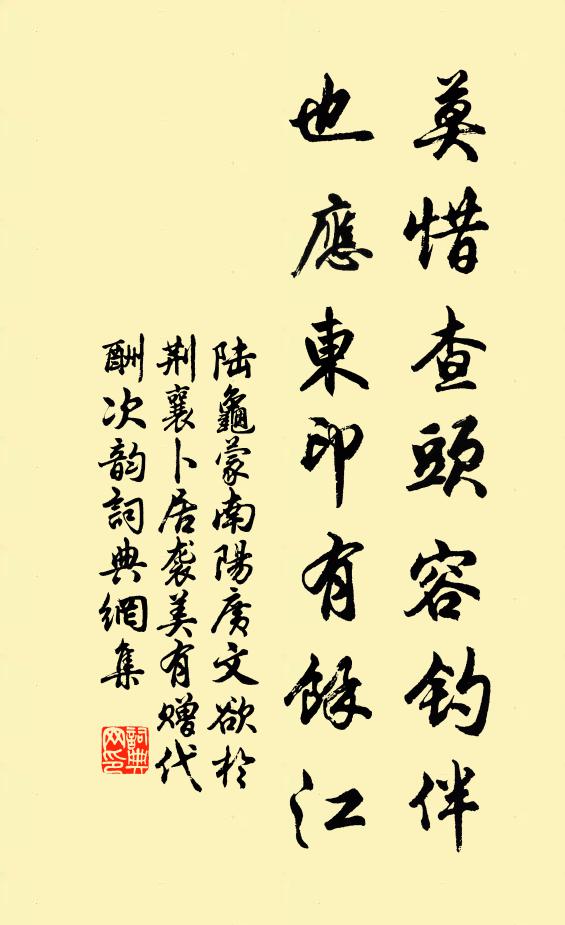 莫惜查頭容钓伴
也應東印有餘江
陆龜蒙南陽廣文欲於
荆襄卜居袭美有赠代
酬次韵詞典網集
詞典网印